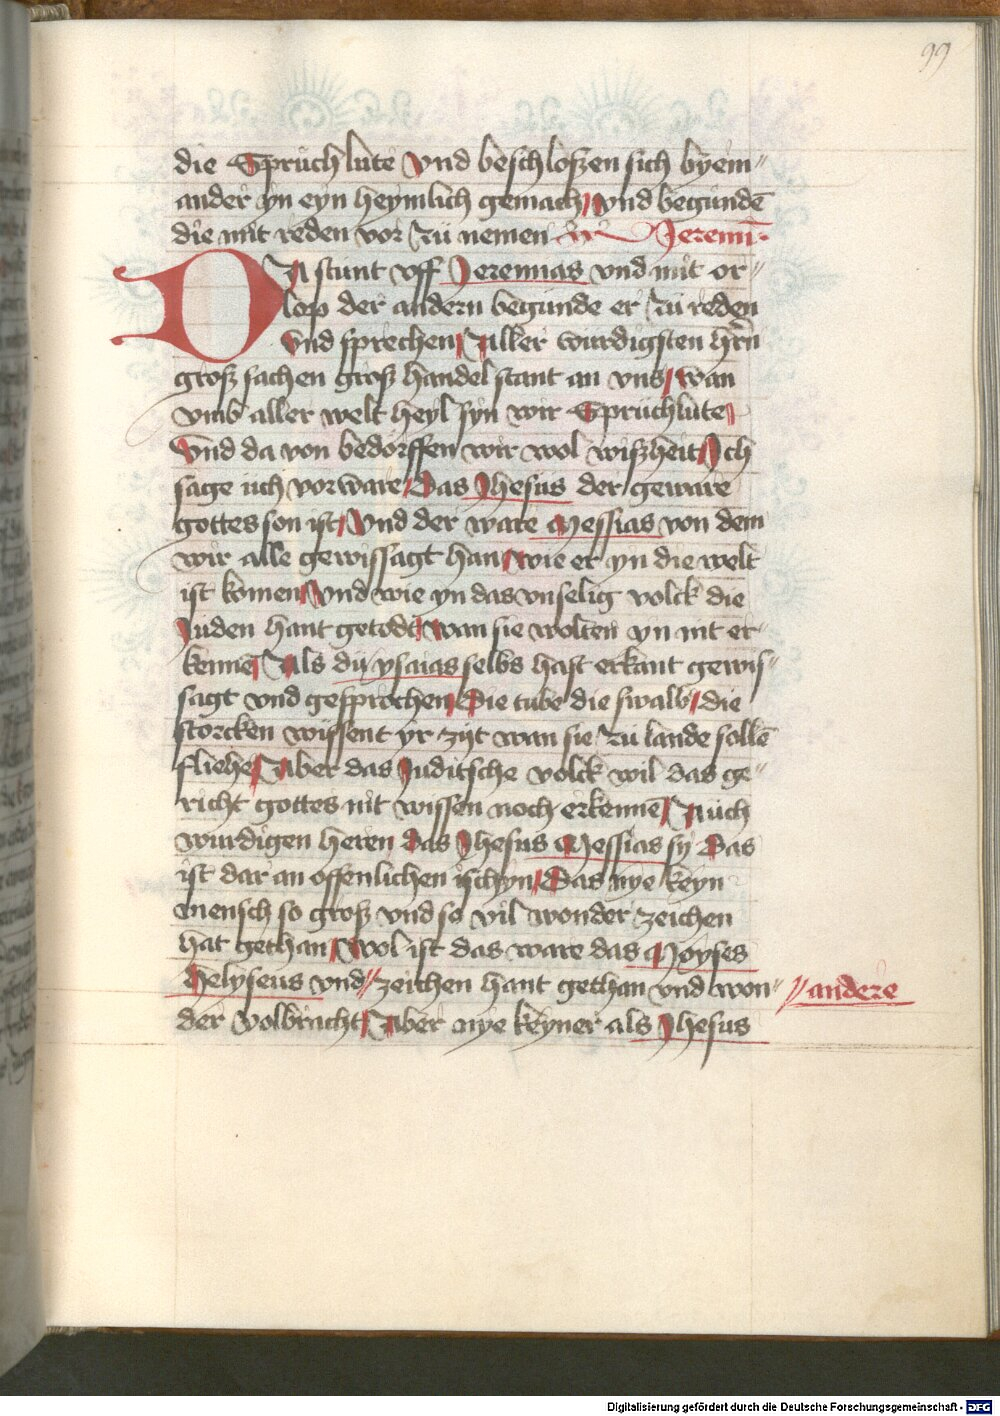 99
die Sprüch lüte vnd beschloßen sich byem〃
ander yn eyn heymlich gemach / vnd begündē
die mit reden vor zü nemen Jeremi·
DA stunt vff Jeremias vnd mit or〃
lop der andern begunde er zü reden
vnd sprechen / Aller würdigsten hrn̄
groß sachen groß handel stant an vns / wan
vmb aller welt heyl syn wir Sprüchlüte /
vnd da von bedörffen wir wol wißheit / Ich
sage üch vorware / Das Jhesüs der geware
gottes son ist / vnd der ware Messias von dem
wir alle gewissagt han / wie er yn die welt
ist komen / vnd wie yn das vnselig volck die
Jüden hant getödt / wan sie wolten yn nit er〃
kennē / Als dü ysaias selbs hast erkant gewis〃
sagt vnd gesprochen / Die tube die swalb / die
storcken wissent yr zijt wan sie zü lande sollē
fliehe / Aber das Juditsche volck wil das ge〃
richt gottes nit wissen noch erkennē / Auch
wurdigen heren das Jhesus Messias sy Das
ist dar an offenlichen ischyn / Das nye keyn
mensch so groß vnd so vil wonder zeichen
hat gethan / Wol ist das ware das Moyses
Helyseus vnd〃 zeichen hant gethan vnd won〃 〃andere
der volbracht / Aber nye keyner als Jhesus
Digitalisierung gefördert durch die Deutsche Forschungsgemeinschaft - DFG